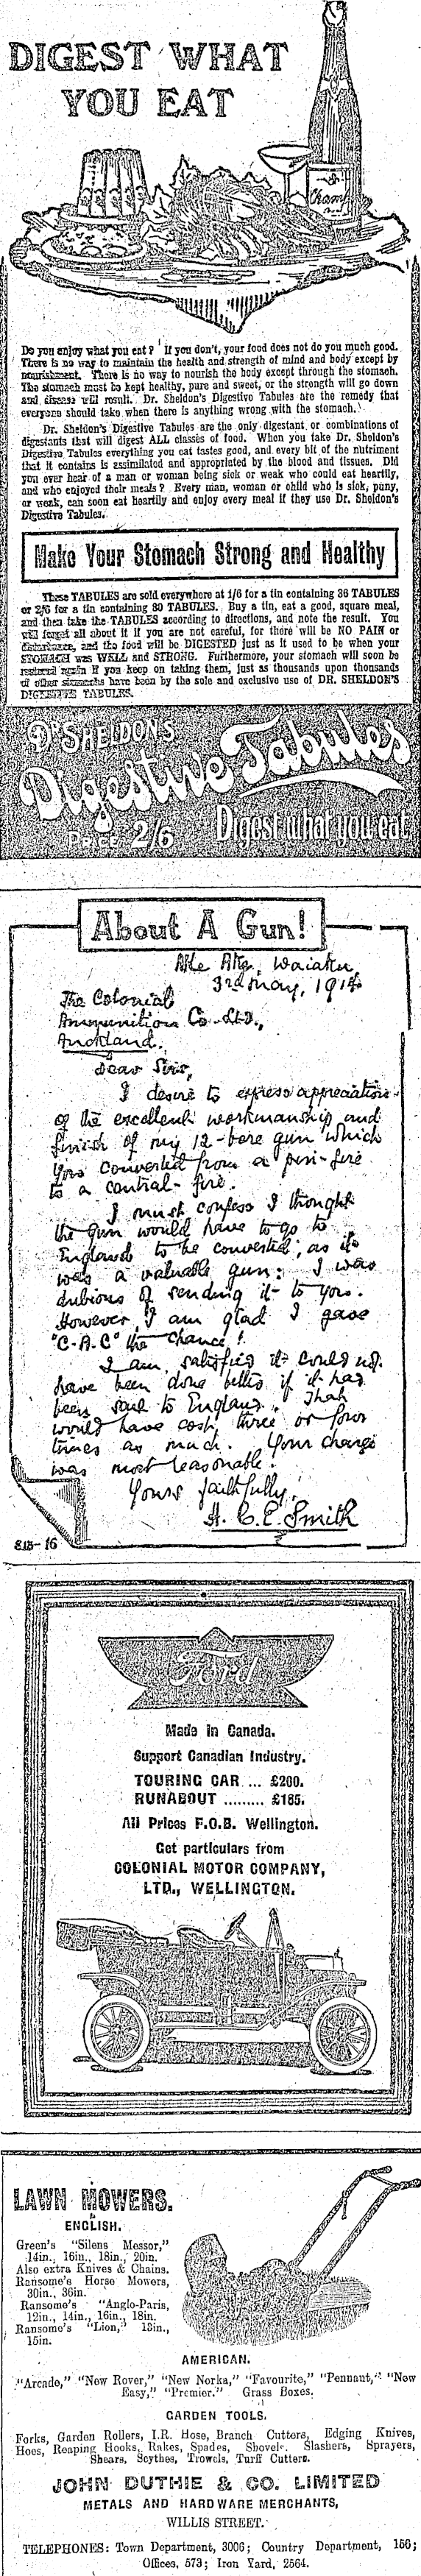 DIGEST WHAT
YOU EAT
Cham
Do you enjoy what you eat? If you don't, your food does not do you much good.
There is no way to maintain the health and strength of mind and body except by
nourishment. There is no way to nourish the body except through the stomach.
The stomach must be kept healthy, pure and sweet, or the strength will go down
and disease will result. Dr. Sheldon's Digestive Tabules are the remedy that
everyone should take when there is anything wrong with the stomach.
Dr. Sheldon's Digestive Tabules are the only digestant or combinations of
digestants that will digest ALL classes of food. When you take Dr. Sheldon's
Digestive Tabules everything you eat tastes good, and every bit of the nutriment
that it contains is assimilated and appropriated by the blood and tissues. Did
you ever hear of a man or woman being sick or weak who could eat heartily,
and who enjoyed their meals? Every man, woman or child who is sick, puny,
or weak, can soon eat heartily and enjoy every meal if they use Dr. Sheldon's
Digestive Tabules.
Make Your Stomach Strong and Healthy
These TABULES are sold everywhere at 1/6 for a tin containing 36 TABULES
or 2/6 for a tin containing 80 TABULES. Buy a tin, eat a good, square meal,
and then take the TABULES according to directions, and note the result. You
will forget all about it if you are not careful, for there will be NO PAIN or
disturbance, and the food will be DIGESTED just as it used to be when your
STOMACH was WELL and STRONG. Furthermore, your stomach will soon be
restored again if you keep on taking them, just as thousands upon thousands
of other stomachs have been by the sole and exclusive use of DR. SHELDON'S
DIGESTIVE TABULES.
DR SHELDON'S
Digestive Tabules
PRICE 2/6 Digest what you eat
About A Gun!
Waiaku,
3rd May, 1914
The Colonial
Ammunition Co. Ltd.,
Auckland.
Dear Sirs,
I desire to express appreciation
of the excellent workmanship and
finish of my 12-bore gun which
you converted from a pin-fire
to a central-fire.
I must confess I thought
the gun would have to go to
England to be converted; as it
was a valuable gun: I was
dubious of sending it to you.
However, I am glad I gave
"C-A-C" the chance!
I am satisfied it could not
have been done better if it had
been sent to England. That
would have cost three or four
times as much. Your charge
was most reasonable.
Yours faithfully,
H. C. E. Smith
S13-16
Ford
Made in Canada.
Support Canadian Industry.
TOURING CAR ... £200.
RUNABOUT ......... £185.
All Prices F.O.B. Wellington.
Get particulars from
COLONIAL MOTOR COMPANY,
LTD., WELLINGTON.
LAWN MOWERS.
ENGLISH.
Green's "Silens Messor,"
14in., 16in., 18in., 20in.
Also extra Knives & Chains.
Ransome's Horse Mowers,
30in., 36in.
Ransome's "Anglo-Paris,
12in., 14in., 16in., 18in.
Ransome's "Lion," 13in.,
15in.
AMERICAN.
"Arcade," "New Rover," "New Norka," "Favourite," "Pennant," "New
Easy," "Premier." Grass Boxes.
GARDEN TOOLS.
Forks, Garden Rollers, I.R. Hose, Branch Cutters, Edging Knives,
Hoes, Reaping Hooks, Rakes, Spades, Shovels. Slashers, Sprayers,
Shears, Scythes, Trowels, Turff Cutters.
JOHN DUTHIE & CO. LIMITED
METALS AND HARDWARE MERCHANTS,
WILLIS STREET.
TELEPHONES: Town Department, 3006; Country Department, 156;
Offices, 573; Iron Yard, 2564.